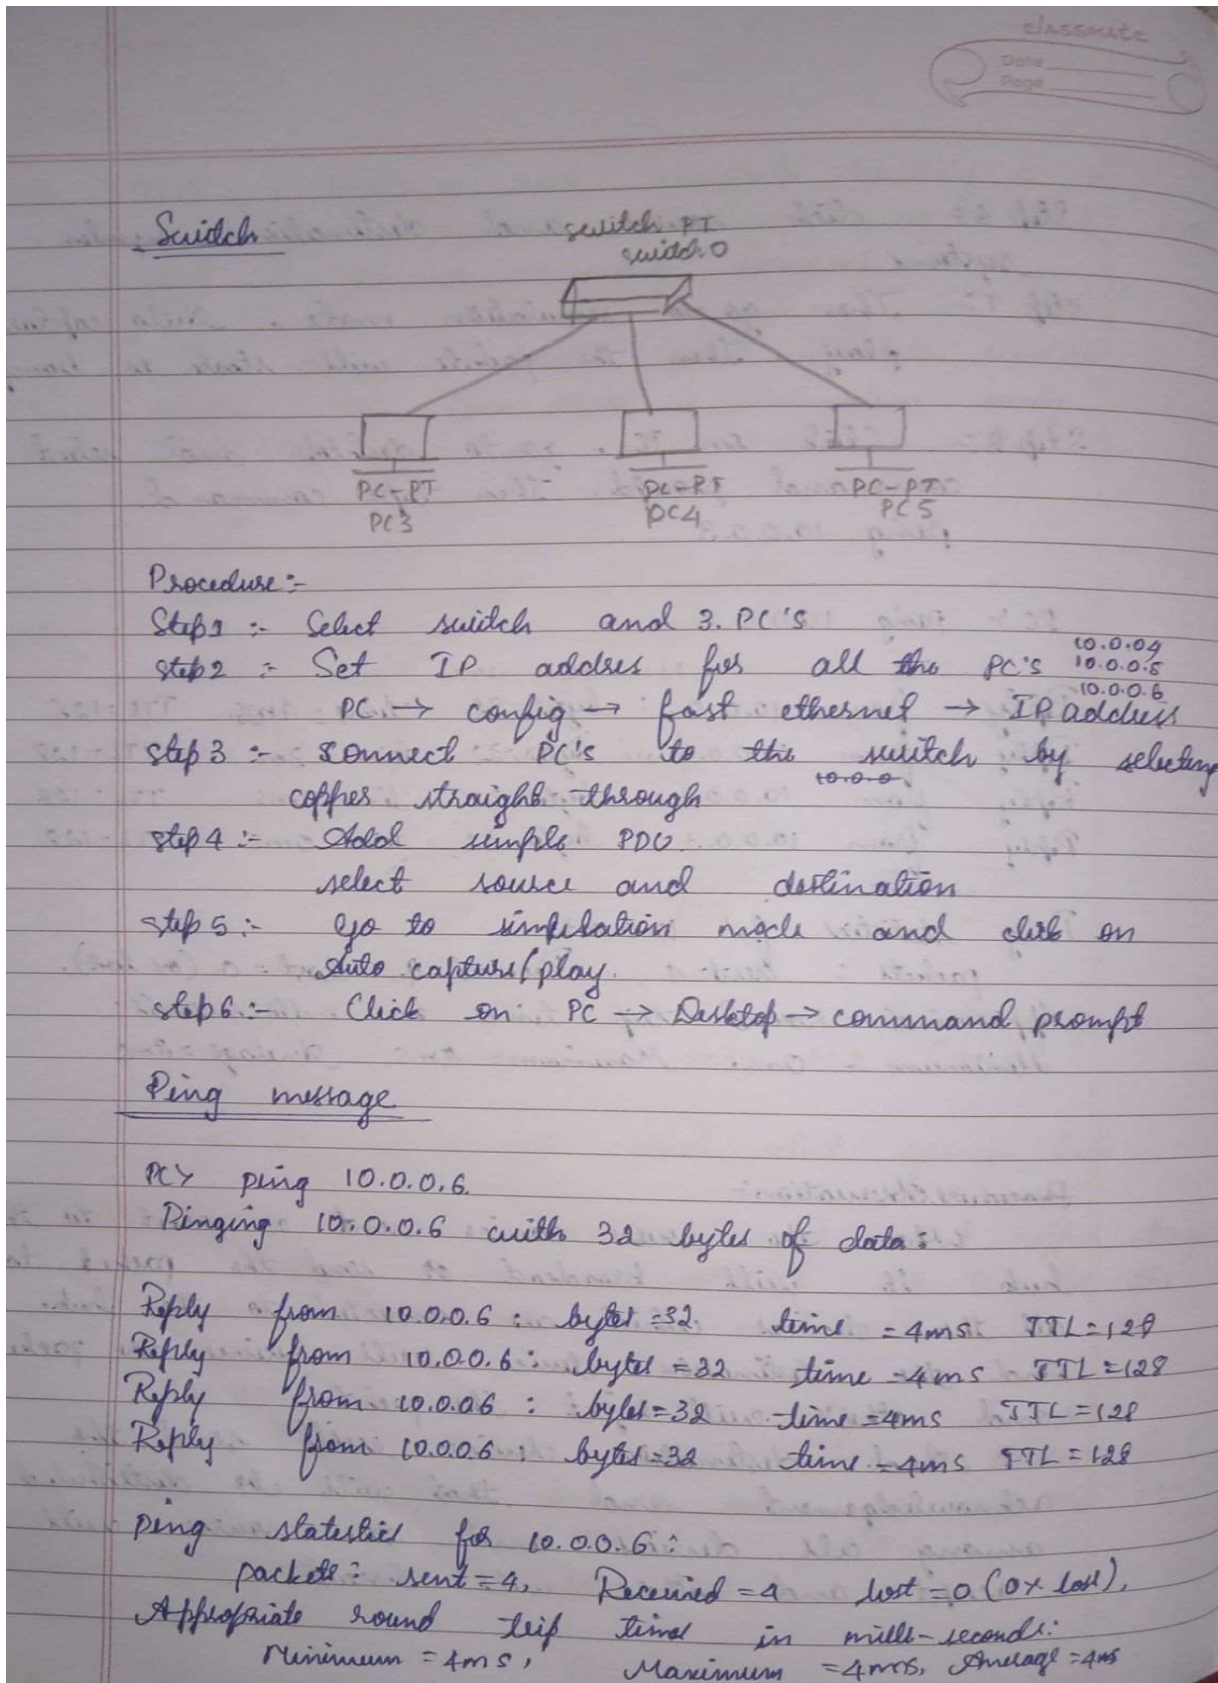 classmate
Date
Page
Switch
switch PT
switch 0
PC-PT
PC3
PC-PT
PC4
PC-PT
PC5
Procedure :-
Step 1 :- Select switch and 3. PC's
step 2 :- Set IP address for all the PC's 10.0.04
10.0.0.5
10.0.0.6
PC → config → fast ethernet → IP address
step 3 :- Connect PC's to the switch by selecting
10.0.0
copper straight through
step 4 :- Add simple PDU
select source and destination
step 5 :- Go to simulation mode and click on
Auto capture/play.
step 6 :- Click on PC → Desktop → command prompt
Ping message
PC> ping 10.0.0.6.
Pinging 10.0.0.6 with 32 bytes of data :
Reply from 10.0.0.6 : bytes =32 time =4ms TTL=128
Reply from 10.0.0.6 : bytes =32 time =4ms TTL=128
Reply from 10.0.06 : bytes=32 time =4ms TTL=128
Reply from 10.0.0.6 : bytes=32 time =4ms TTL=128
ping statistics for 10.0.0.6 :
packets : sent =4, Received =4 lost =0 (0% loss),
Appropriate round trip time in milli-seconds:
Minimum =4ms, Maximum =4ms, Average =4ms